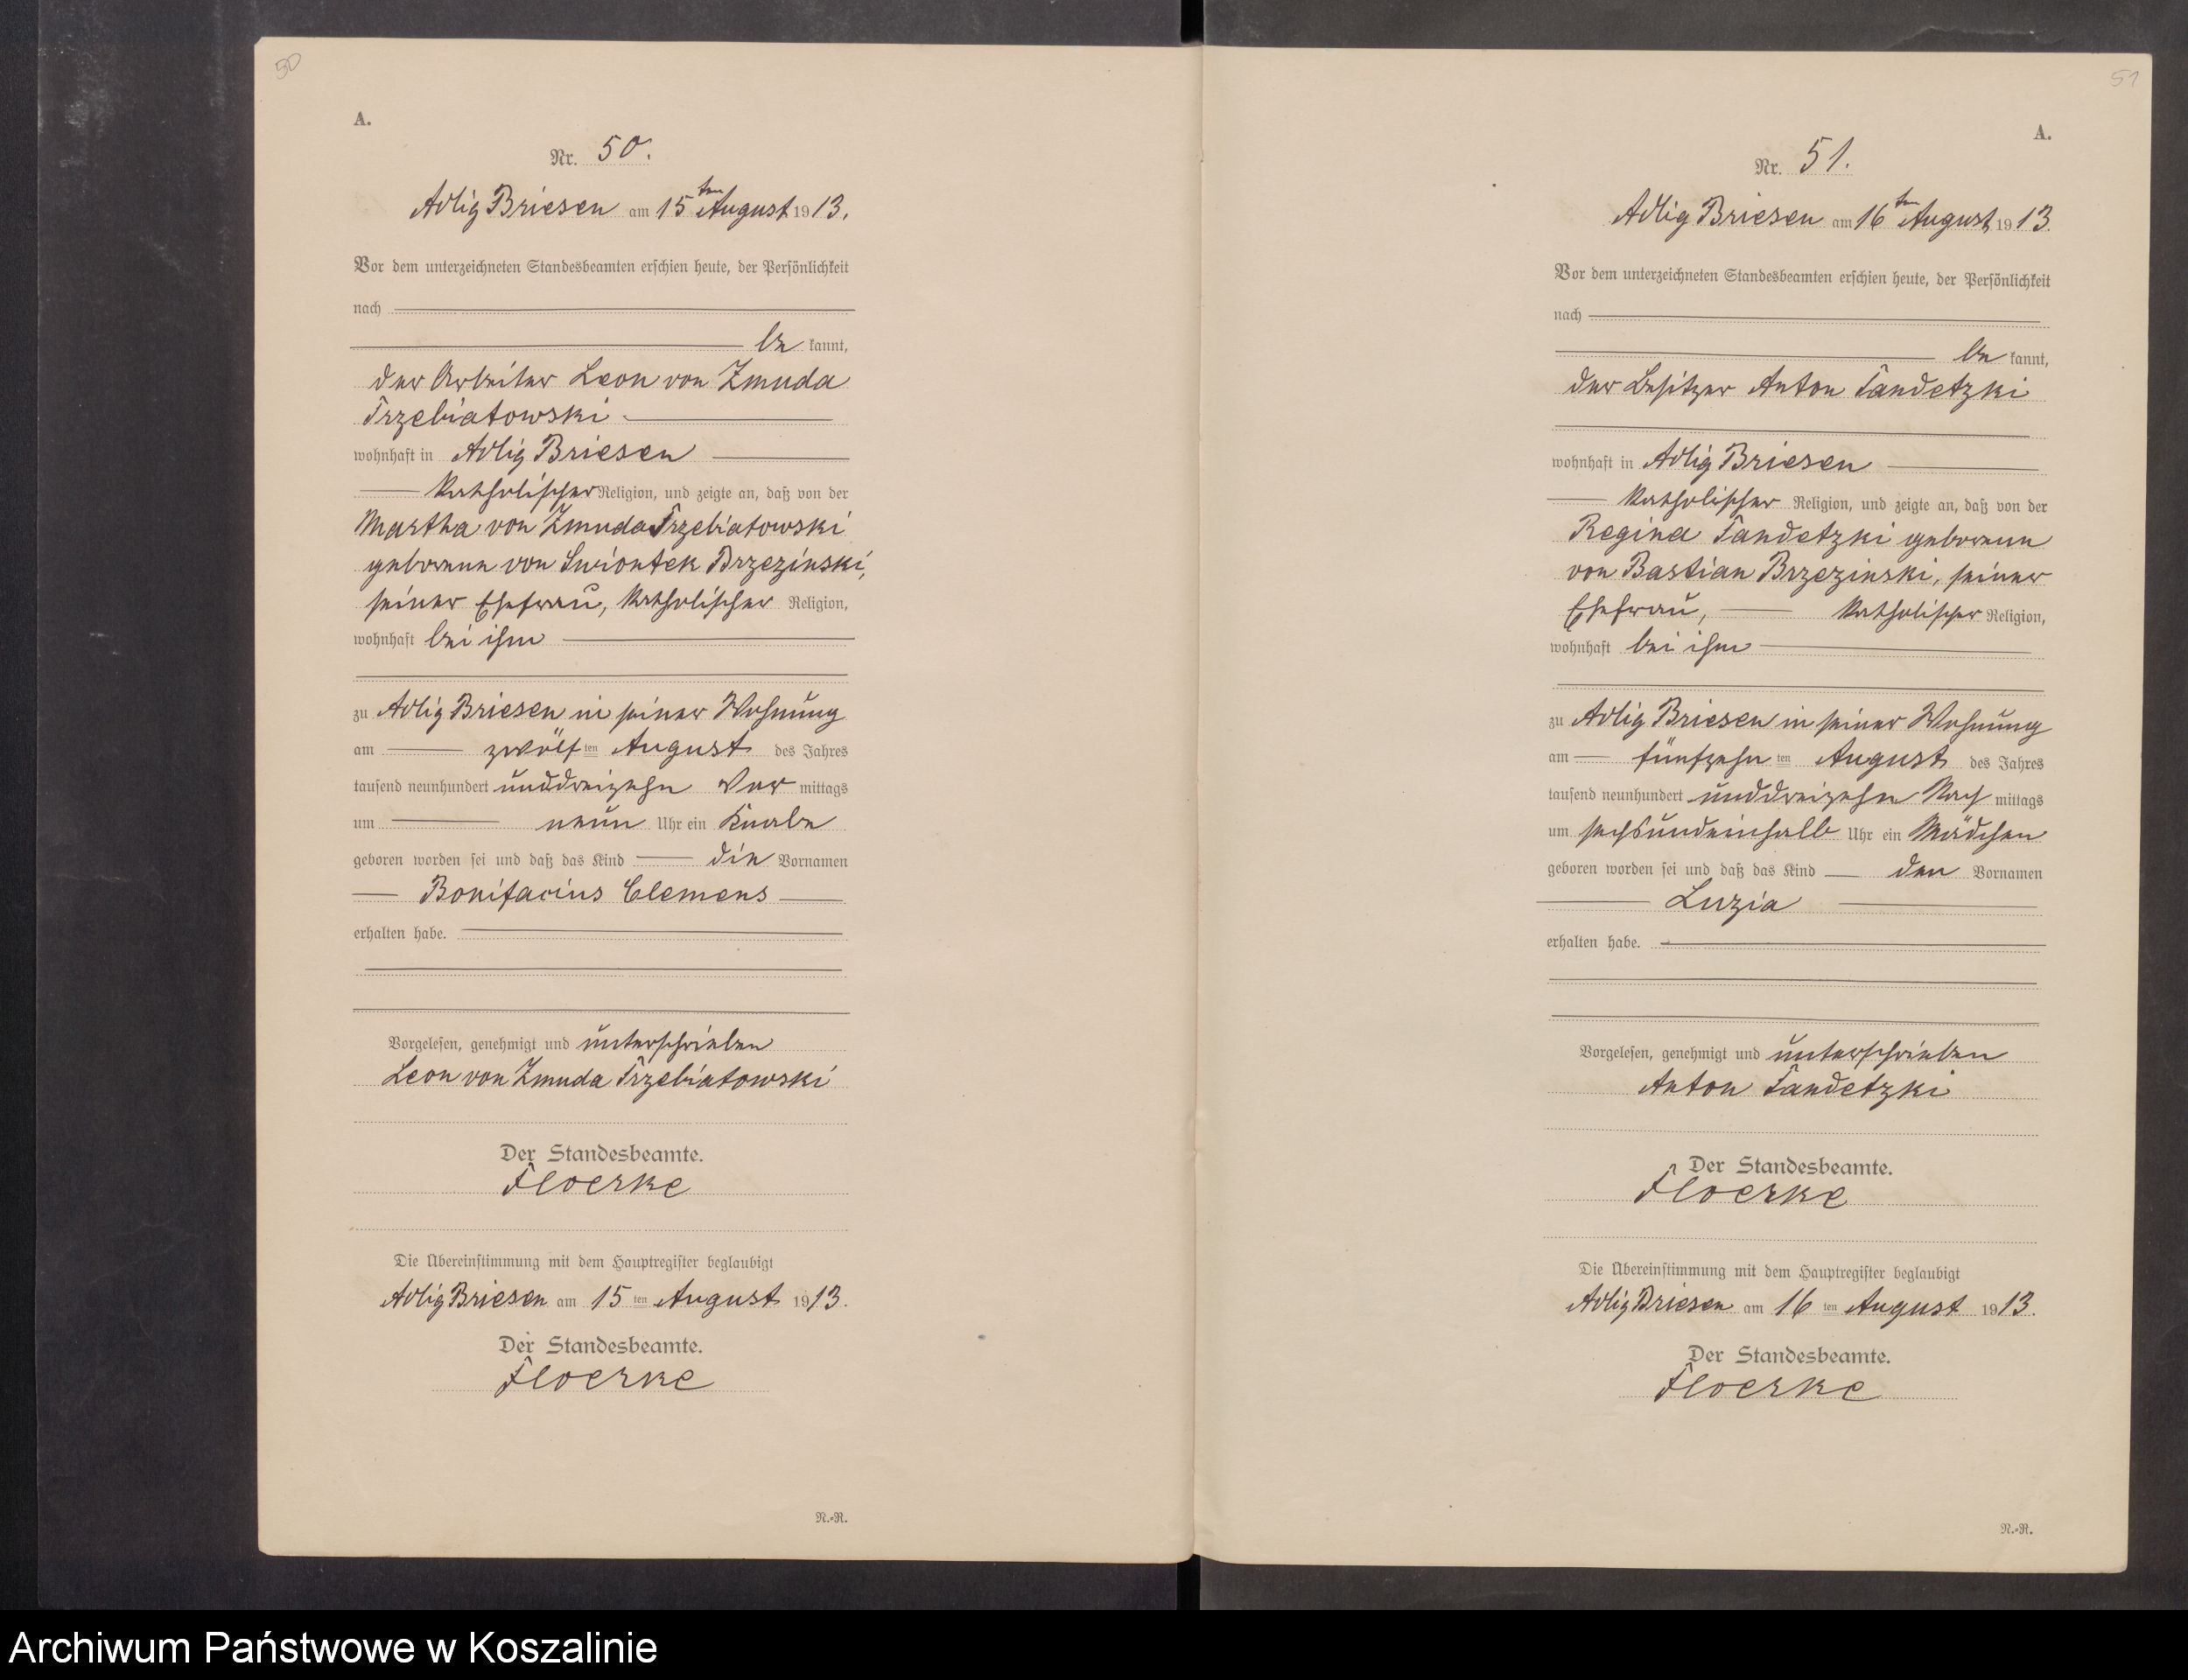 50
A.
Nr. 50.
Adlig Briesen am 15ten August 1913.
Vor dem unterzeichneten Standesbeamten erschien heute, der Persönlichkeit
nach
be kannt,
der Arbeiter Leon von Zmuda
Trzebiatowski
wohnhaft in Adlig Briesen
katholischer Religion, und zeigte an, daß von der
Martha von Zmuda Trzebiatowski
geborenen von Swiontek Brzezinski,
seiner Ehefrau, katholischer Religion,
wohnhaft bei ihm
zu Adlig Briesen in seiner Wohnung
am zwölf ten August des Jahres
tausend neunhundert unddreizehn Vor mittags
um neun Uhr ein Knabe
geboren worden sei und daß das Kind die Vornamen
Bonifacius Clemens
erhalten habe.
Vorgelesen, genehmigt und unterschrieben
Leon von Zmuda Trzebiatowski
Der Standesbeamte.
Floerke
Die Übereinstimmung mit dem Hauptregister beglaubigt
Adlig Briesen am 15 ten August 1913.
Der Standesbeamte.
Floerke
N.-R.
51
A.
Nr. 51.
Adlig Briesen am 16ten August 1913.
Vor dem unterzeichneten Standesbeamten erschien heute, der Persönlichkeit
nach
be kannt,
der Besitzer Anton Tandetzki
wohnhaft in Adlig Briesen
katholischer Religion, und zeigte an, daß von der
Regina Tandetzki geborenen
von Bastian Brzezinski, seiner
Ehefrau, katholischer Religion,
wohnhaft bei ihm
zu Adlig Briesen in seiner Wohnung
am fünfzehn ten August des Jahres
tausend neunhundert unddreizehn Nach mittags
um sechsundeinhalb Uhr ein Mädchen
geboren worden sei und daß das Kind den Vornamen
Luzia
erhalten habe.
Vorgelesen, genehmigt und unterschrieben
Anton Tandetzki
Der Standesbeamte.
Floerke
Die Übereinstimmung mit dem Hauptregister beglaubigt
Adlig Briesen am 16 ten August 1913.
Der Standesbeamte.
Floerke
N.-R.
Archiwum Państwowe w Koszalinie